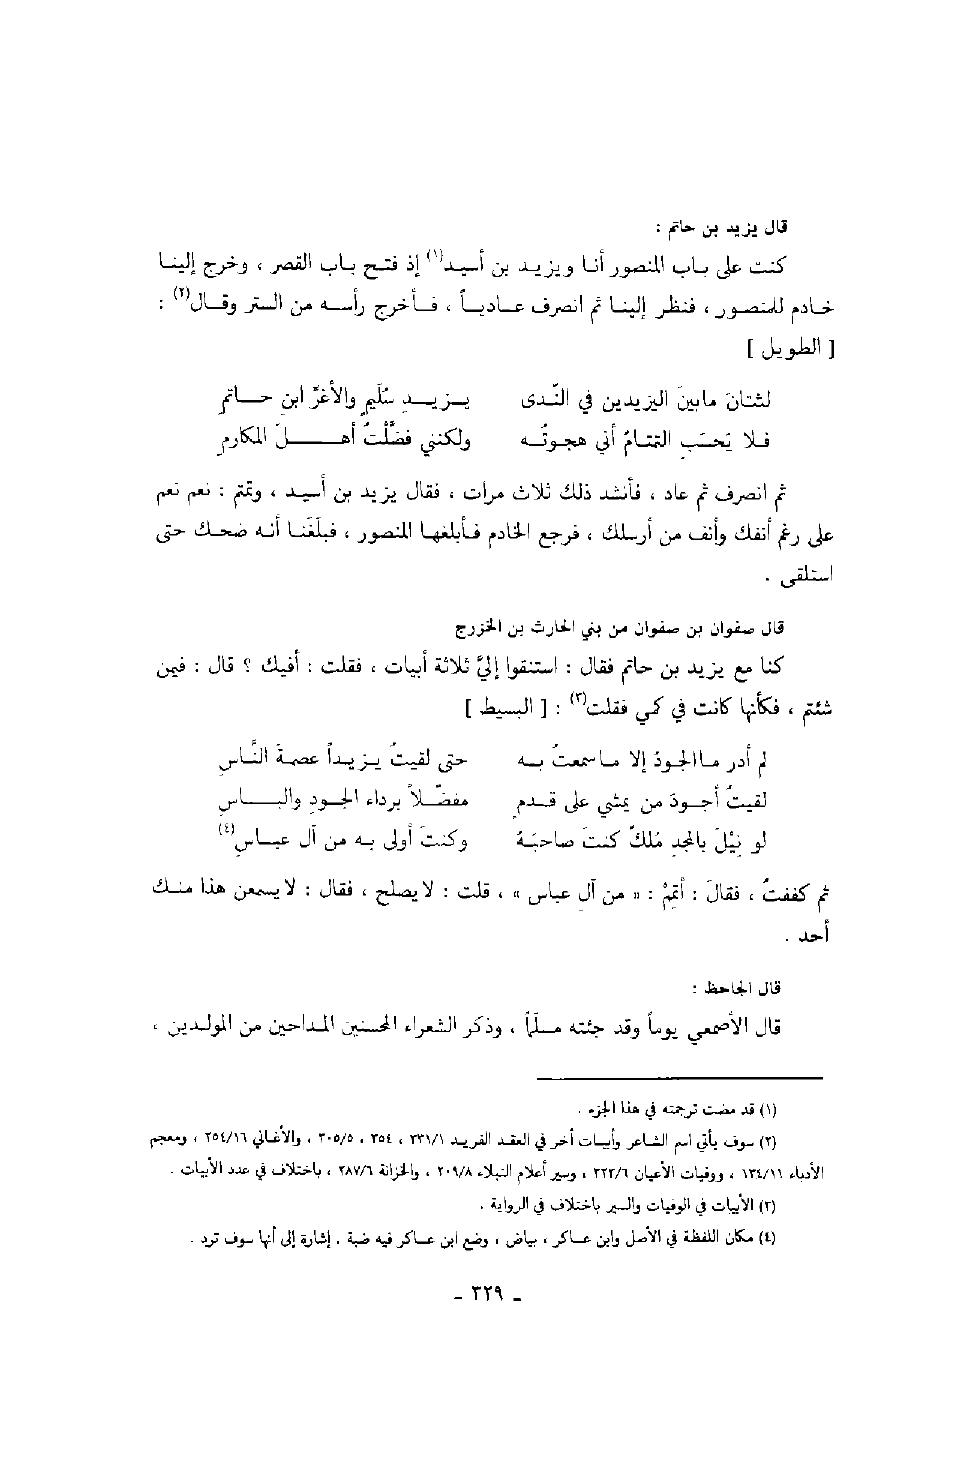 قال يزيد بن حاتم :
كنت على باب المنصور أنا ويزيد بن أسيد(١) إذ فتح باب القصر ، وخرج إلينا
خادم للمنصور ، فنظر إلينا ثم انصرف عادياً ، فأخرج رأسه من الستر وقال(٢) :
[ الطويل ]
لشتانَ مابينَ اليزيدين في النَّدى يزيدِ سُلَيمٍ والأغرِّ ابنِ حاتمِ
فلا يَحسَبِ التمتامُ أني هجوتُه ولكنني فضَّلْتُ أهلَ المكارمِ
ثم انصرف ثم عاد ، فأنشد ذلك ثلاث مرات ، فقال يزيد بن أسيد ، وتمتم : نعم نعم
على رغم أنفك وأنف من أرسلك ، فرجع الخادم فأبلغها المنصور ، فبلَغَنا أنه ضحك حتى
استلقى .
قال صفوان بن صفوان من بني الحارث بن الخزرج
كنا مع يزيد بن حاتم فقال : استنقوا إليَّ ثلاثة أبيات ، فقلت : أفيك ؟ قال : فيمن
شئتم ، فكأنها كانت في كمي فقلت(٣) : [ البسيط ]
لم أدرِ ماالجودُ إلا ماسمعتُ به حتى لقيتُ يزيداً عصمةَ النَّاسِ
لقيتُ أجودَ من يمشي على قدمٍ مفضّلاً برداء الجودِ والباسِ
لو نِيْلَ بالمجدِ مُلكٌ كنتَ صاحبَهُ وكنتَ أولى به من آل عباسِ(٤)
ثم كففتُ ، فقالَ : أتمِمْ : « من آلِ عباس » ، قلت : لايصلح ، فقال : لايسمعن هذا منك
أحد .
قال الجاحظ :
قال الأصمعي يوماً وقد جئته مسلّماً ، وذكر الشعراء المحسنين المداحين من المولدين ،
(١) قد مضت ترجمته في هذا الجزء .
(٢) سوف يأتي اسم الشاعر وأبيات أخر في العقد الفريد ٢٣١/١ ، ٢٥٤ ، ٣٠٥/٥ ، والأغاني ٢٥٤/١٦ ، ومعجم
الأدباء ١٣٤/١١ ، ووفيات الأعيان ٣٢٢/٦ ، وسير أعلام النبلاء ٢٠٩/٨ ، والخزانة ٢٨٧/٦ ، باختلاف في عدد الأبيات .
(٣) الأبيات في الوفيات والسير باختلاف في الرواية .
(٤) مكان اللفظة في الأصل وابن عساكر ، بياض ، وضع ابن عساكر فيه ضبة . إشارة إلى أنها سوف ترد .
- ٣٢٩ -